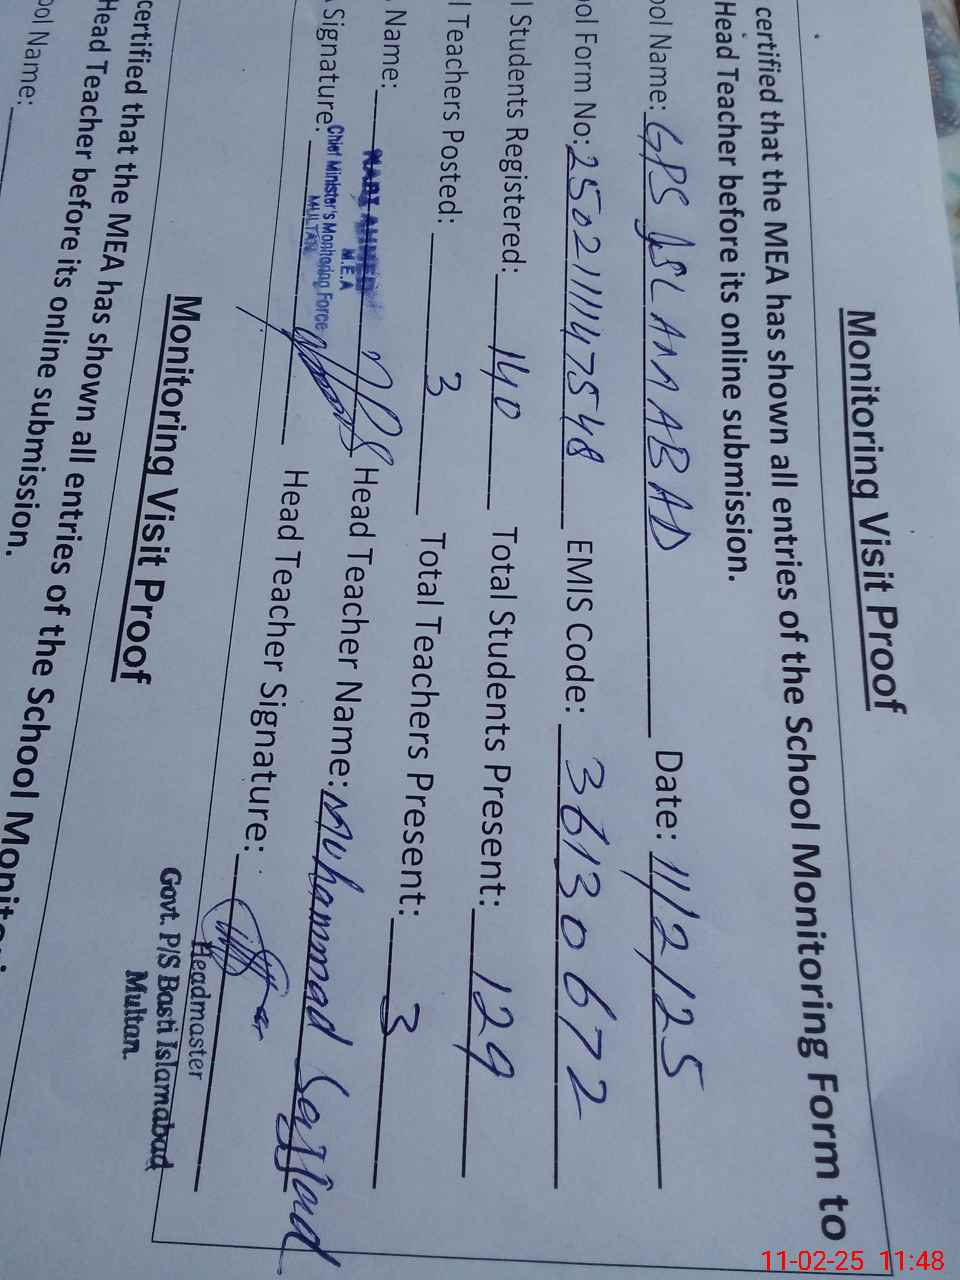 Monitoring Visit Proof
certified that the MEA has shown all entries of the School Monitoring Form to
Head Teacher before its online submission.
ool Name: GPS ISLAMABAD Date: 11/2/25
ool Form No: 2502111147548 EMIS Code: 36130672
l Students Registered: 140 Total Students Present: 129
l Teachers Posted: 3 Total Teachers Present: 3
Name: Head Teacher Name: Muhammad Sajjad
M.E.A
Signature: Head Teacher Signature:
Chief Minister's Monitoring Force
MULTAN
Headmaster
Govt. P/S Basti Islamabad
Multan.
Monitoring Visit Proof
certified that the MEA has shown all entries of the School Monitori
Head Teacher before its online submission.
ool Name:
11-02-25 11:48